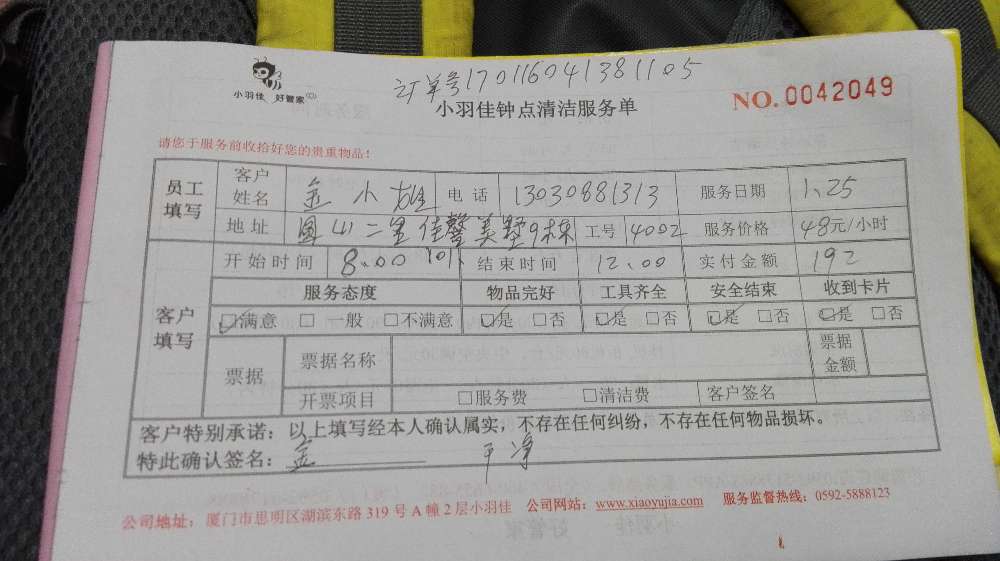 订单号170116041381105
小羽佳 好管家
小羽佳钟点清洁服务单
NO. 0042049
请您于服务前收拾好您的贵重物品！
员工填写 客户姓名 金小姐 电话 13030881313 服务日期 1.25
地址 圆山二里佳馨美墅9栋 工号 4002 服务价格 48元/小时
客户填写 开始时间 8:00 结束时间 12:00 实付金额 192
服务态度 物品完好 工具齐全 安全结束 收到卡片
☑满意 □一般 □不满意 ☑是 □否 ☑是 □否 ☑是 □否 ☑是 □否
票据 票据名称 票据金额
开票项目 □服务费 □清洁费 客户签名
客户特别承诺：以上填写经本人确认属实，不存在任何纠纷，不存在任何物品损坏。
特此确认签名：金 干净
公司地址：厦门市思明区湖滨东路319号A幢2层小羽佳 公司网站：www.xiaoyujia.com 服务监督热线：0592-5888123